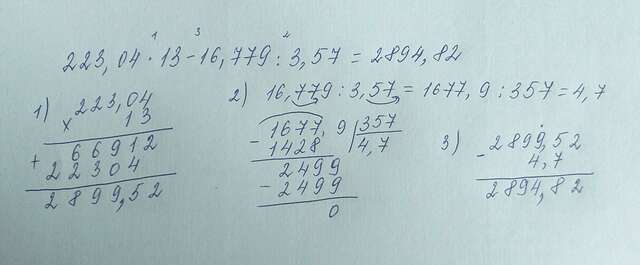 1 3 2
223,04 · 13 - 16,779 : 3,57 = 2894,82
1) 223,04
× 13
+ 66912
22304
2899,52
2) 16,779 : 3,57 = 1677,9 : 357 = 4,7
- 1677,9 | 357
1428 | 4,7
2499
- 2499
0
3) 2899,52
- 4,7
2894,82